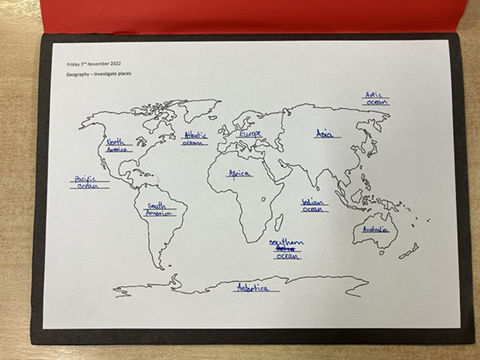 Friday 3rd November 2022
Geography – investigate places
Artic
ocean
North
America
Atlantic
ocean
Europe
Asia
Pacific
ocean
Africa
South
America
Indian
ocean
Australia
Southern
ocean
Antartica